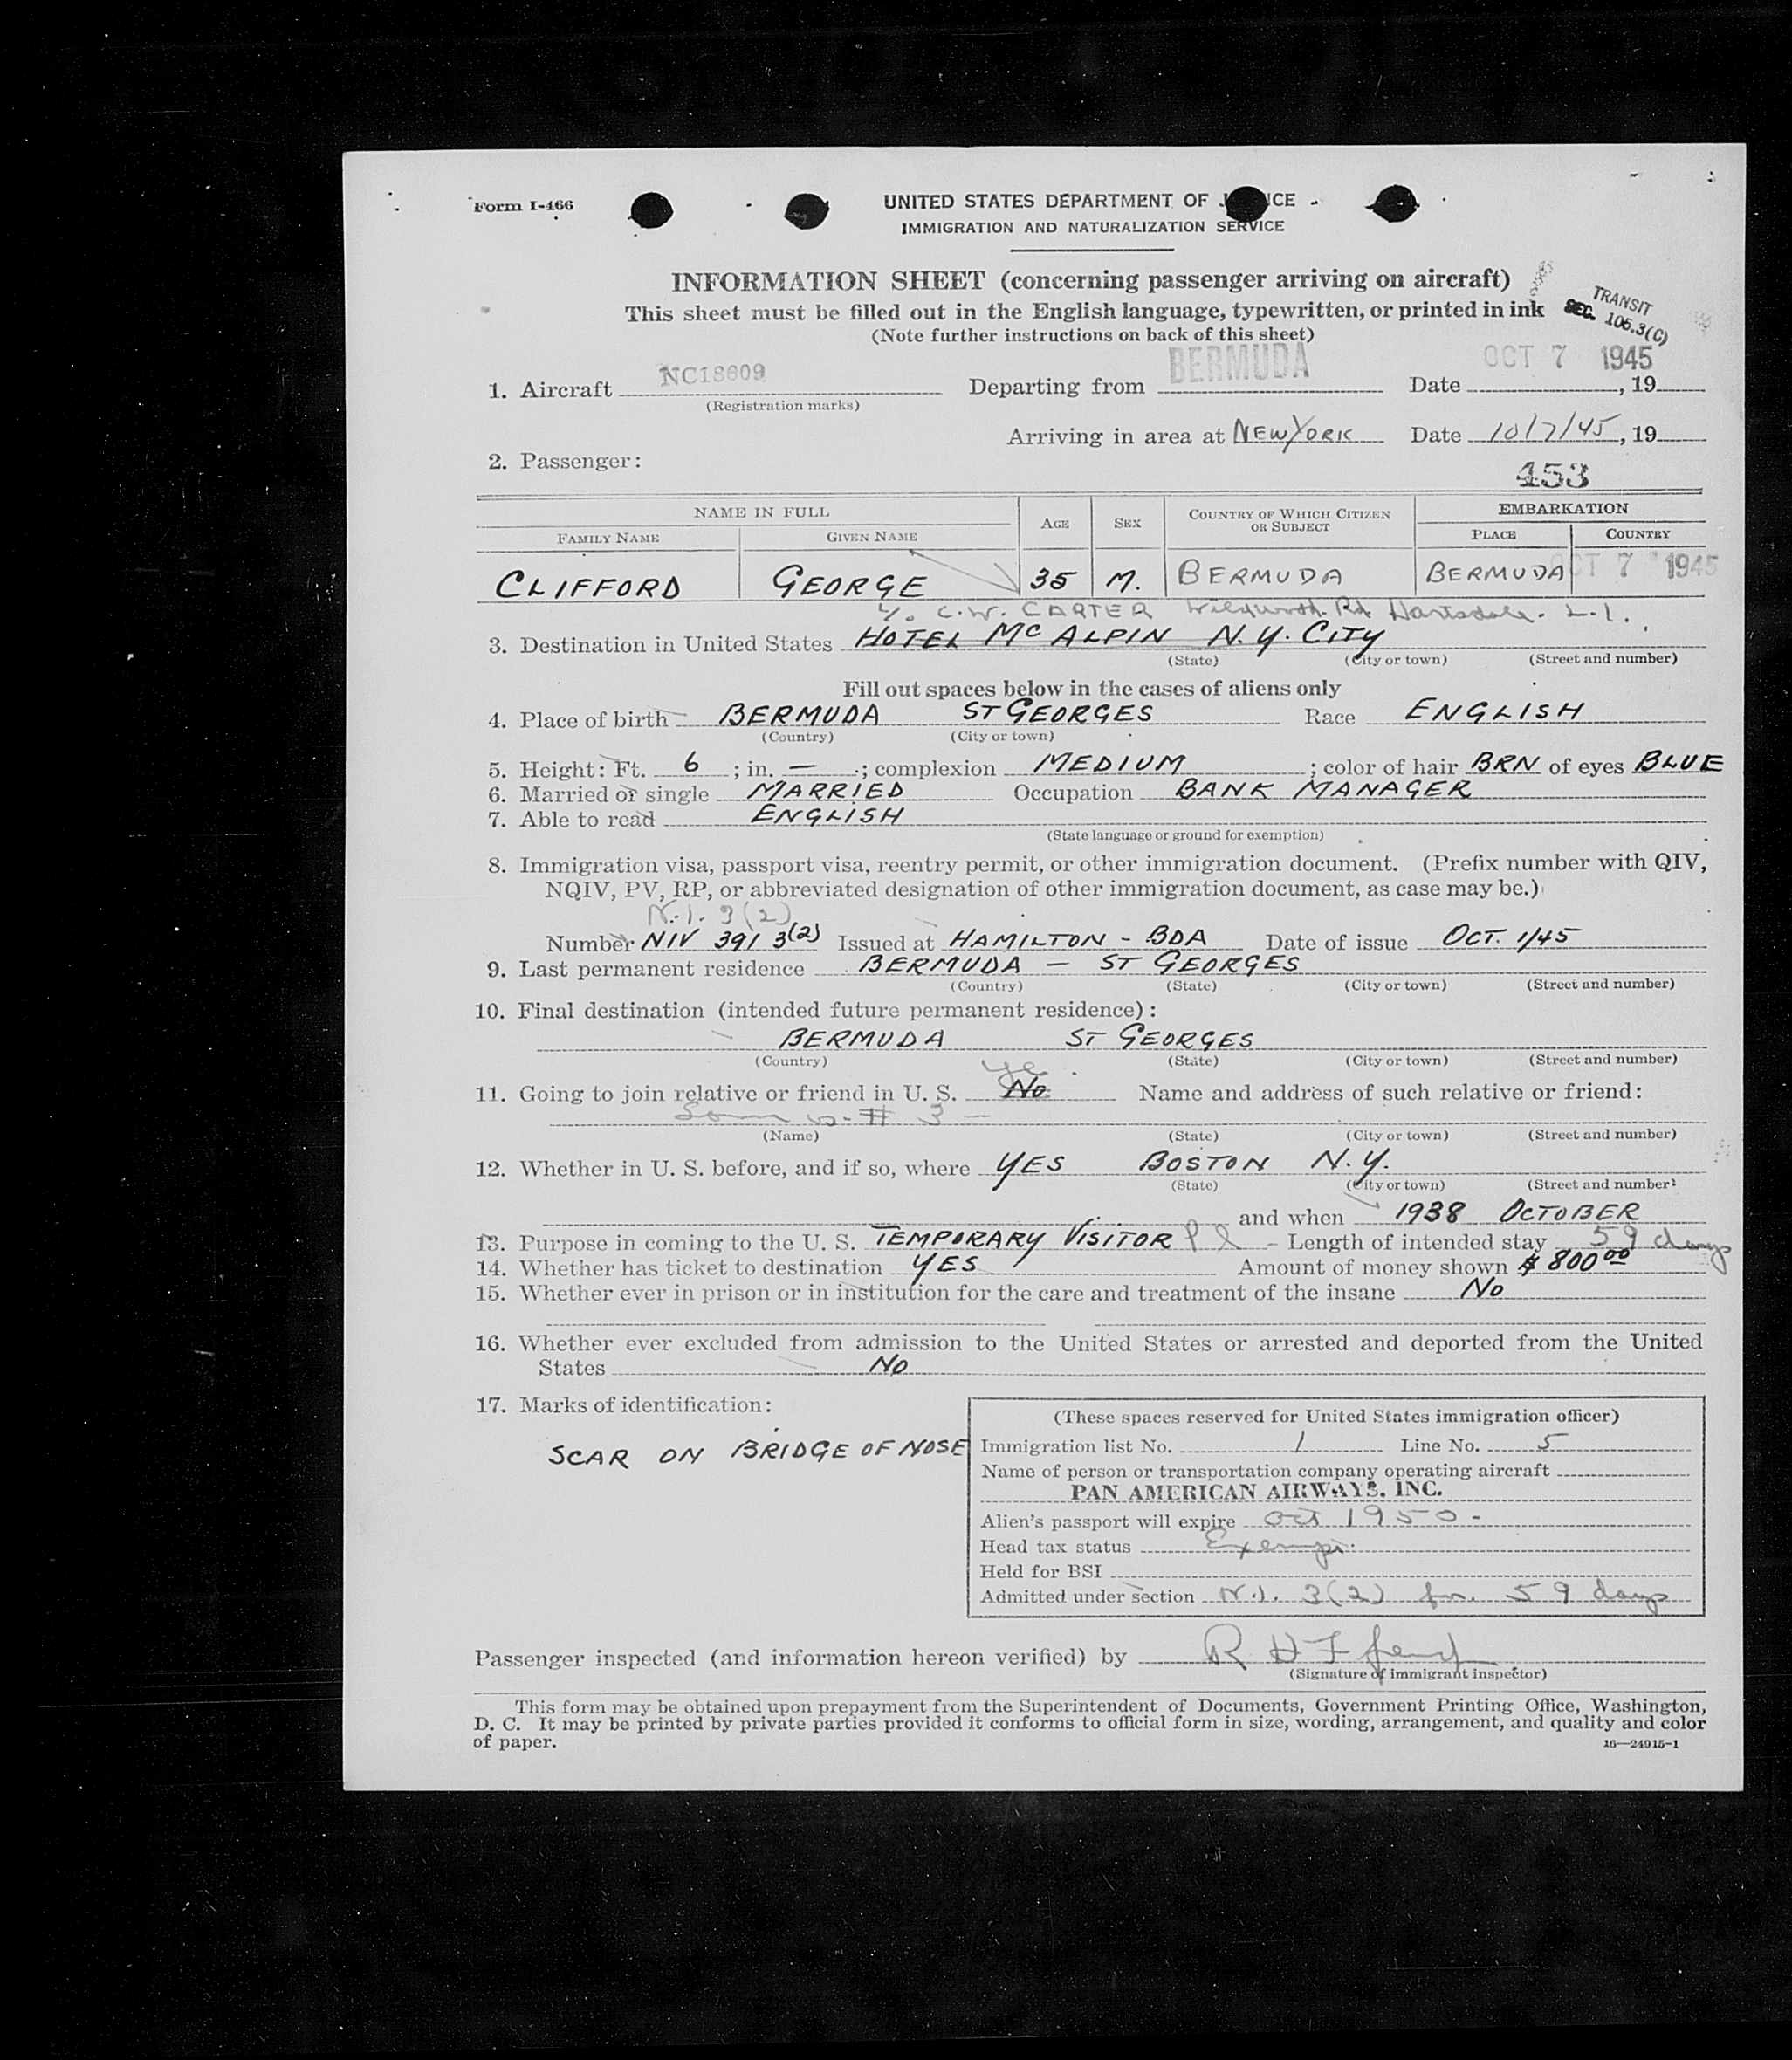 Form I-466
UNITED STATES DEPARTMENT OF J ICE
IMMIGRATION AND NATURALIZATION SERVICE
INFORMATION SHEET (concerning passenger arriving on aircraft)
This sheet must be filled out in the English language, typewritten, or printed in ink
(Note further instructions on back of this sheet)
TRANSIT
SEC. 105.3(C)
1. Aircraft NC18609 Departing from BERMUDA Date OCT 7 1945, 19
(Registration marks)
Arriving in area at NEW YORK Date 10/7/45, 19
2. Passenger:
453
NAME IN FULL AGE SEX COUNTRY OF WHICH CITIZEN OR SUBJECT EMBARKATION
FAMILY NAME GIVEN NAME PLACE COUNTRY
CLIFFORD GEORGE 35 M. BERMUDA BERMUDA OCT 7 1945
c/o C.W. CARTER Wildwood Rd. Hartsdale. L.I.
3. Destination in United States HOTEL MCALPIN N.Y. CITY
(State) (City or town) (Street and number)
Fill out spaces below in the cases of aliens only
4. Place of birth BERMUDA ST GEORGES Race ENGLISH
(Country) (City or town)
5. Height: Ft. 6 ; in. — ; complexion MEDIUM ; color of hair BRN of eyes BLUE
6. Married or single MARRIED Occupation BANK MANAGER
7. Able to read ENGLISH
(State language or ground for exemption)
8. Immigration visa, passport visa, reentry permit, or other immigration document. (Prefix number with QIV,
NQIV, PV, RP, or abbreviated designation of other immigration document, as case may be.)
N.I. 3(2)
Number NIV 391 3(2) Issued at HAMILTON - BDA Date of issue OCT. 1/45
9. Last permanent residence BERMUDA — ST GEORGES
(Country) (State) (City or town) (Street and number)
10. Final destination (intended future permanent residence):
BERMUDA ST GEORGES
(Country) (State) (City or town) (Street and number)
11. Going to join relative or friend in U. S. No Name and address of such relative or friend:
# 3 —
(Name) (State) (City or town) (Street and number)
12. Whether in U. S. before, and if so, where YES BOSTON N.Y.
(State) (City or town) (Street and number)
and when 1938 OCTOBER
13. Purpose in coming to the U. S. TEMPORARY VISITOR Pl - Length of intended stay 59 days
14. Whether has ticket to destination YES Amount of money shown $ 800 00
15. Whether ever in prison or in institution for the care and treatment of the insane No
16. Whether ever excluded from admission to the United States or arrested and deported from the United
States No
17. Marks of identification:
SCAR ON BRIDGE OF NOSE
(These spaces reserved for United States immigration officer)
Immigration list No. 1 Line No. 5
Name of person or transportation company operating aircraft
PAN AMERICAN AIRWAYS, INC.
Alien's passport will expire Oct 1950 -
Head tax status Exempt.
Held for BSI
Admitted under section N.I. 3(2) for 59 days
Passenger inspected (and information hereon verified) by R H F
(Signature of immigrant inspector)
This form may be obtained upon prepayment from the Superintendent of Documents, Government Printing Office, Washington,
D. C. It may be printed by private parties provided it conforms to official form in size, wording, arrangement, and quality and color
of paper.
16—24915-1